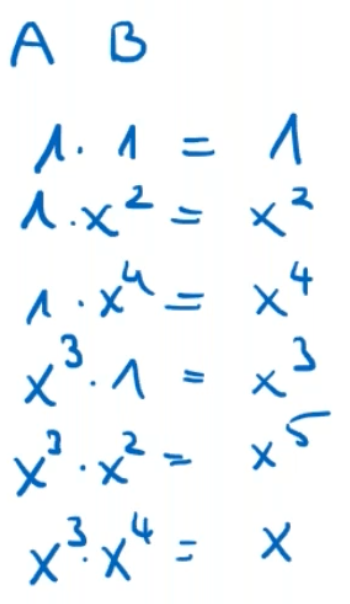 A B
1 · 1 = 1
1 · x² = x²
1 · x⁴ = x⁴
x³ · 1 = x³
x³ · x² = x⁵
x³ · x⁴ = x